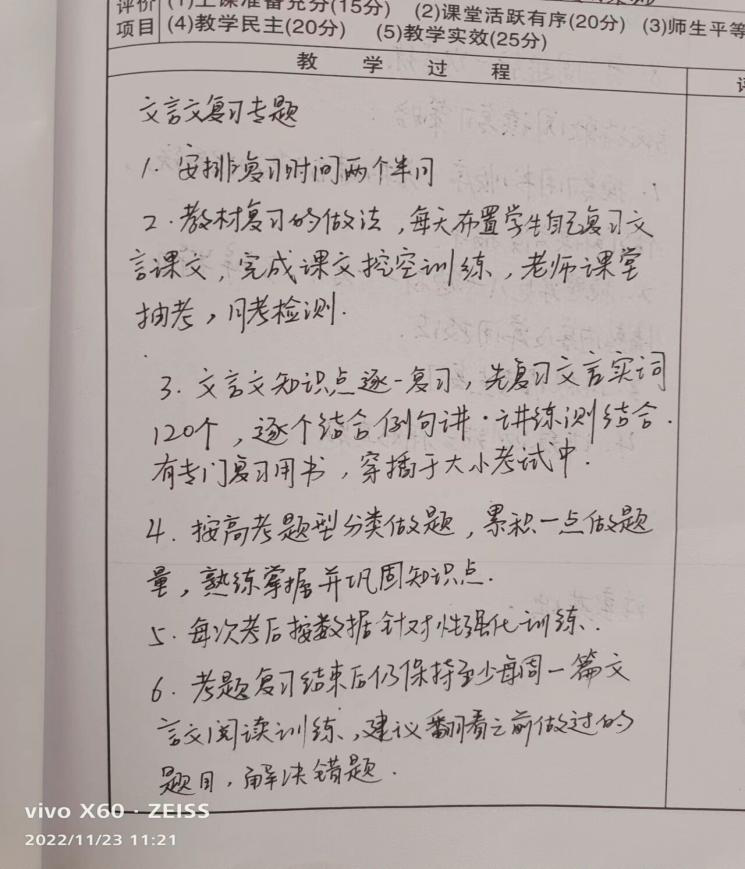 评价 (1)上课准备充分(15分) (2)课堂活跃有序(20分) (3)师生平等
项目 (4)教学民主(20分) (5)教学实效(25分)
教 学 过 程
文言文复习专题
1. 安排复习时间两个半月
2. 教材复习的做法,每天布置学生自己复习文
言课文,完成课文挖空训练,老师课堂
抽考,月考检测.
3. 文言文知识点逐一复习,先复习文言实词
120个,逐个结合例句讲.讲练测结合.
有专门复习用书,穿插于大小考试中.
4. 按高考题型分类做题,累积一点做题
量,熟练掌握并巩固知识点.
5. 每次考后按数据针对性强化训练.
6. 考题复习结束后仍保持至少每周一篇文
言文阅读训练,建议翻看之前做过的
题目,解决错题.
vivo X60 · ZEISS
2022/11/23 11:21